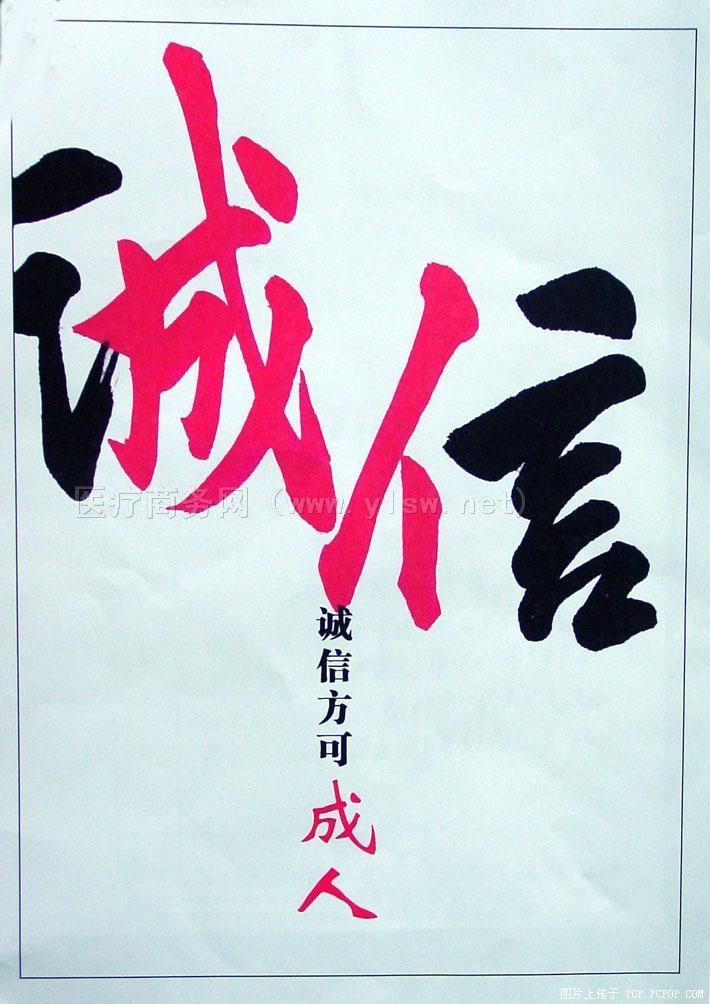 诚信
医疗商务网（www.ylsw.net）
诚信方可
成人
图片上传于 POP.PCPOP.COM